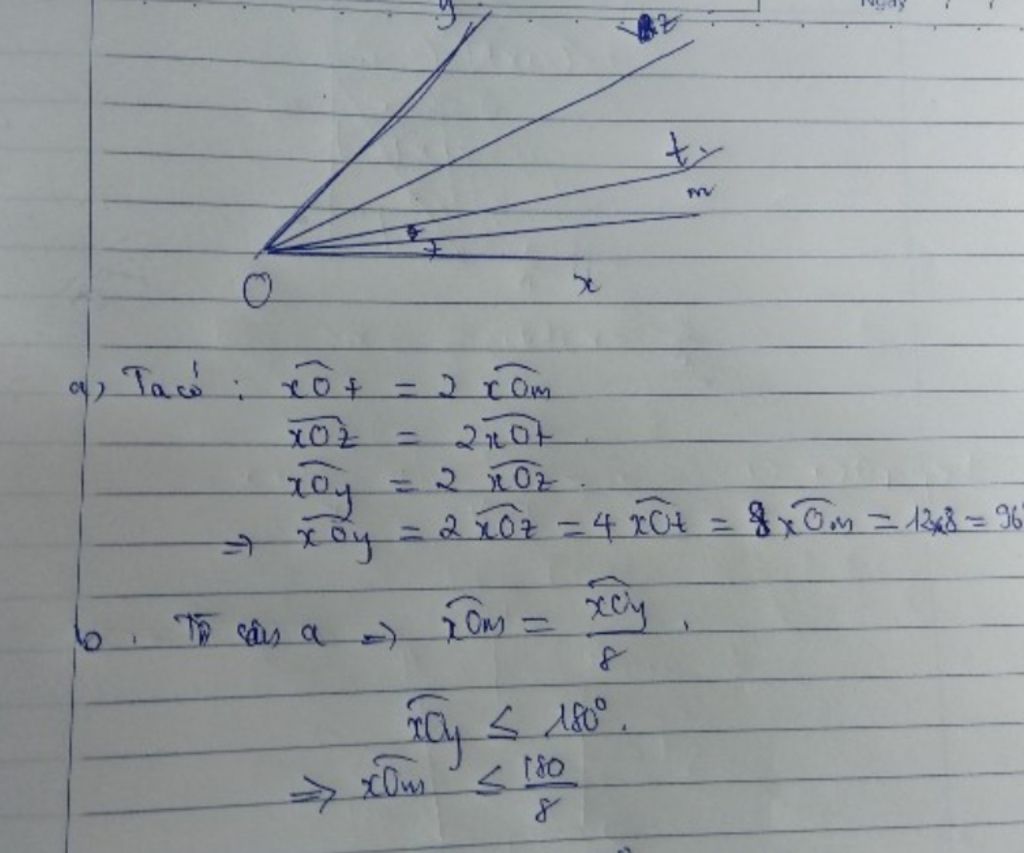 Ngày / /
y
z
t
m
O
x
a) Ta có: xOt = 2 xOm
xOz = 2 xOt.
xOy = 2 xOz.
⇒ xOy = 2 xOz = 4 xOt = 8 xOm = 12x8 = 96
b. Từ câu a ⇒ xOm = xOy / 8.
xOy ≤ 180°.
⇒ xOm ≤ 180 / 8